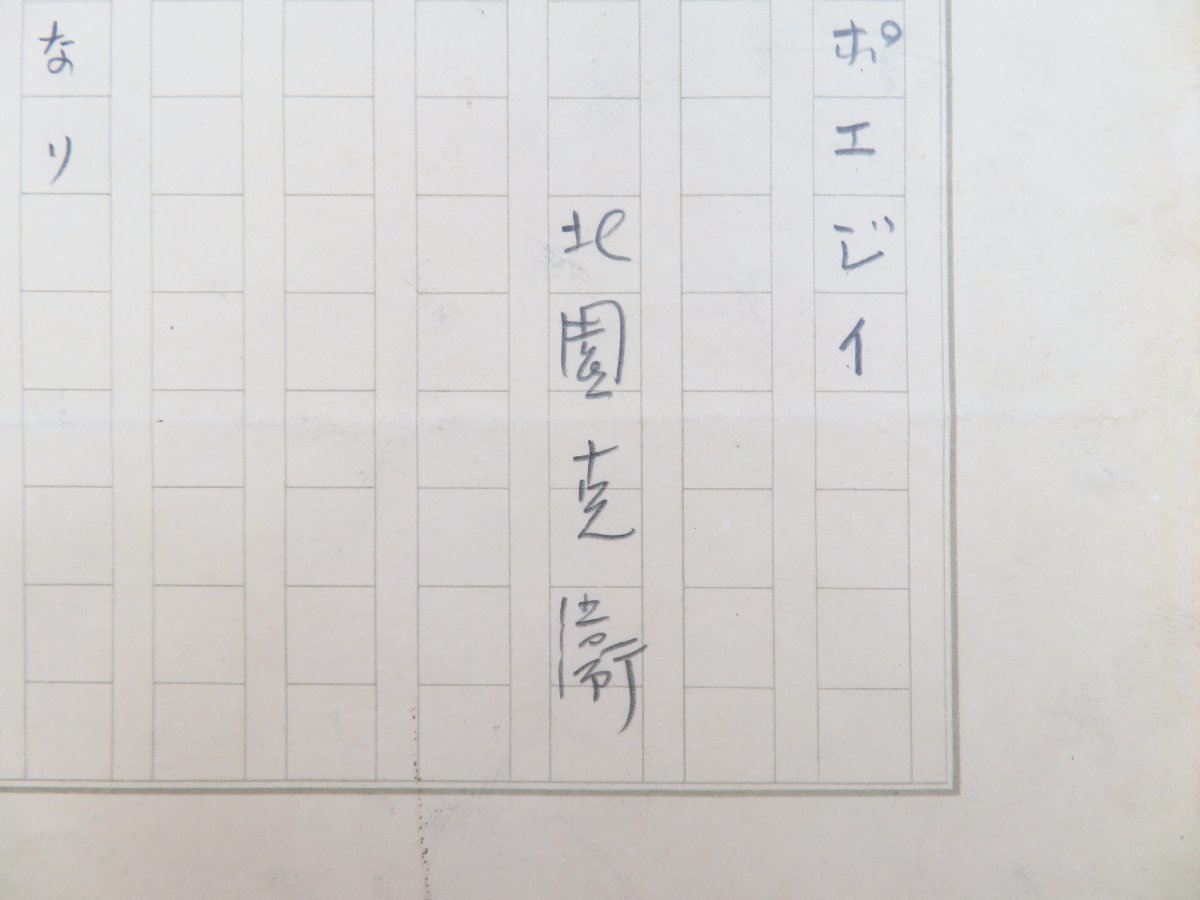 ポエジイ
北園克衛
なり